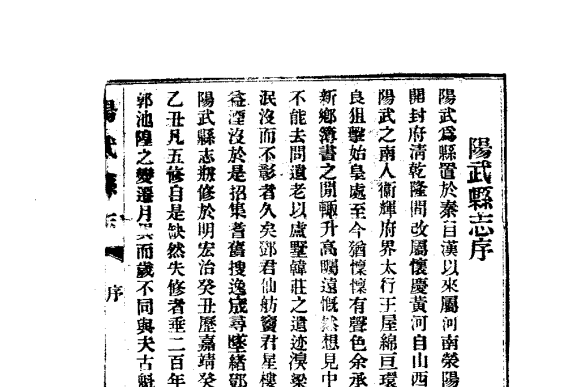 陽武縣志序
陽武爲縣置於秦自漢以來屬河南滎陽
開封府清乾隆間改屬懷慶黃河自山西
陽武之南入衛輝府界太行王屋綿亘環
良狙擊始皇處至今猶懍懍有聲色余承
新鄉簿書之閒輒升高矚遠慨然想見中
不能去問遺老以盧墅韓莊之遺迹溴梁
泯沒而不彰者久矣鄧君仙舫竇君星樓
益湮沒於是招集耆舊搜逸咸尋墜緒鄧
陽武縣志剏修於明宏治癸丑歷嘉靖癸
乙丑凡五修自是缺然失修者垂二百年
郭池隍之變遷月異而歲不同與夫古魁
陽武縣志
序